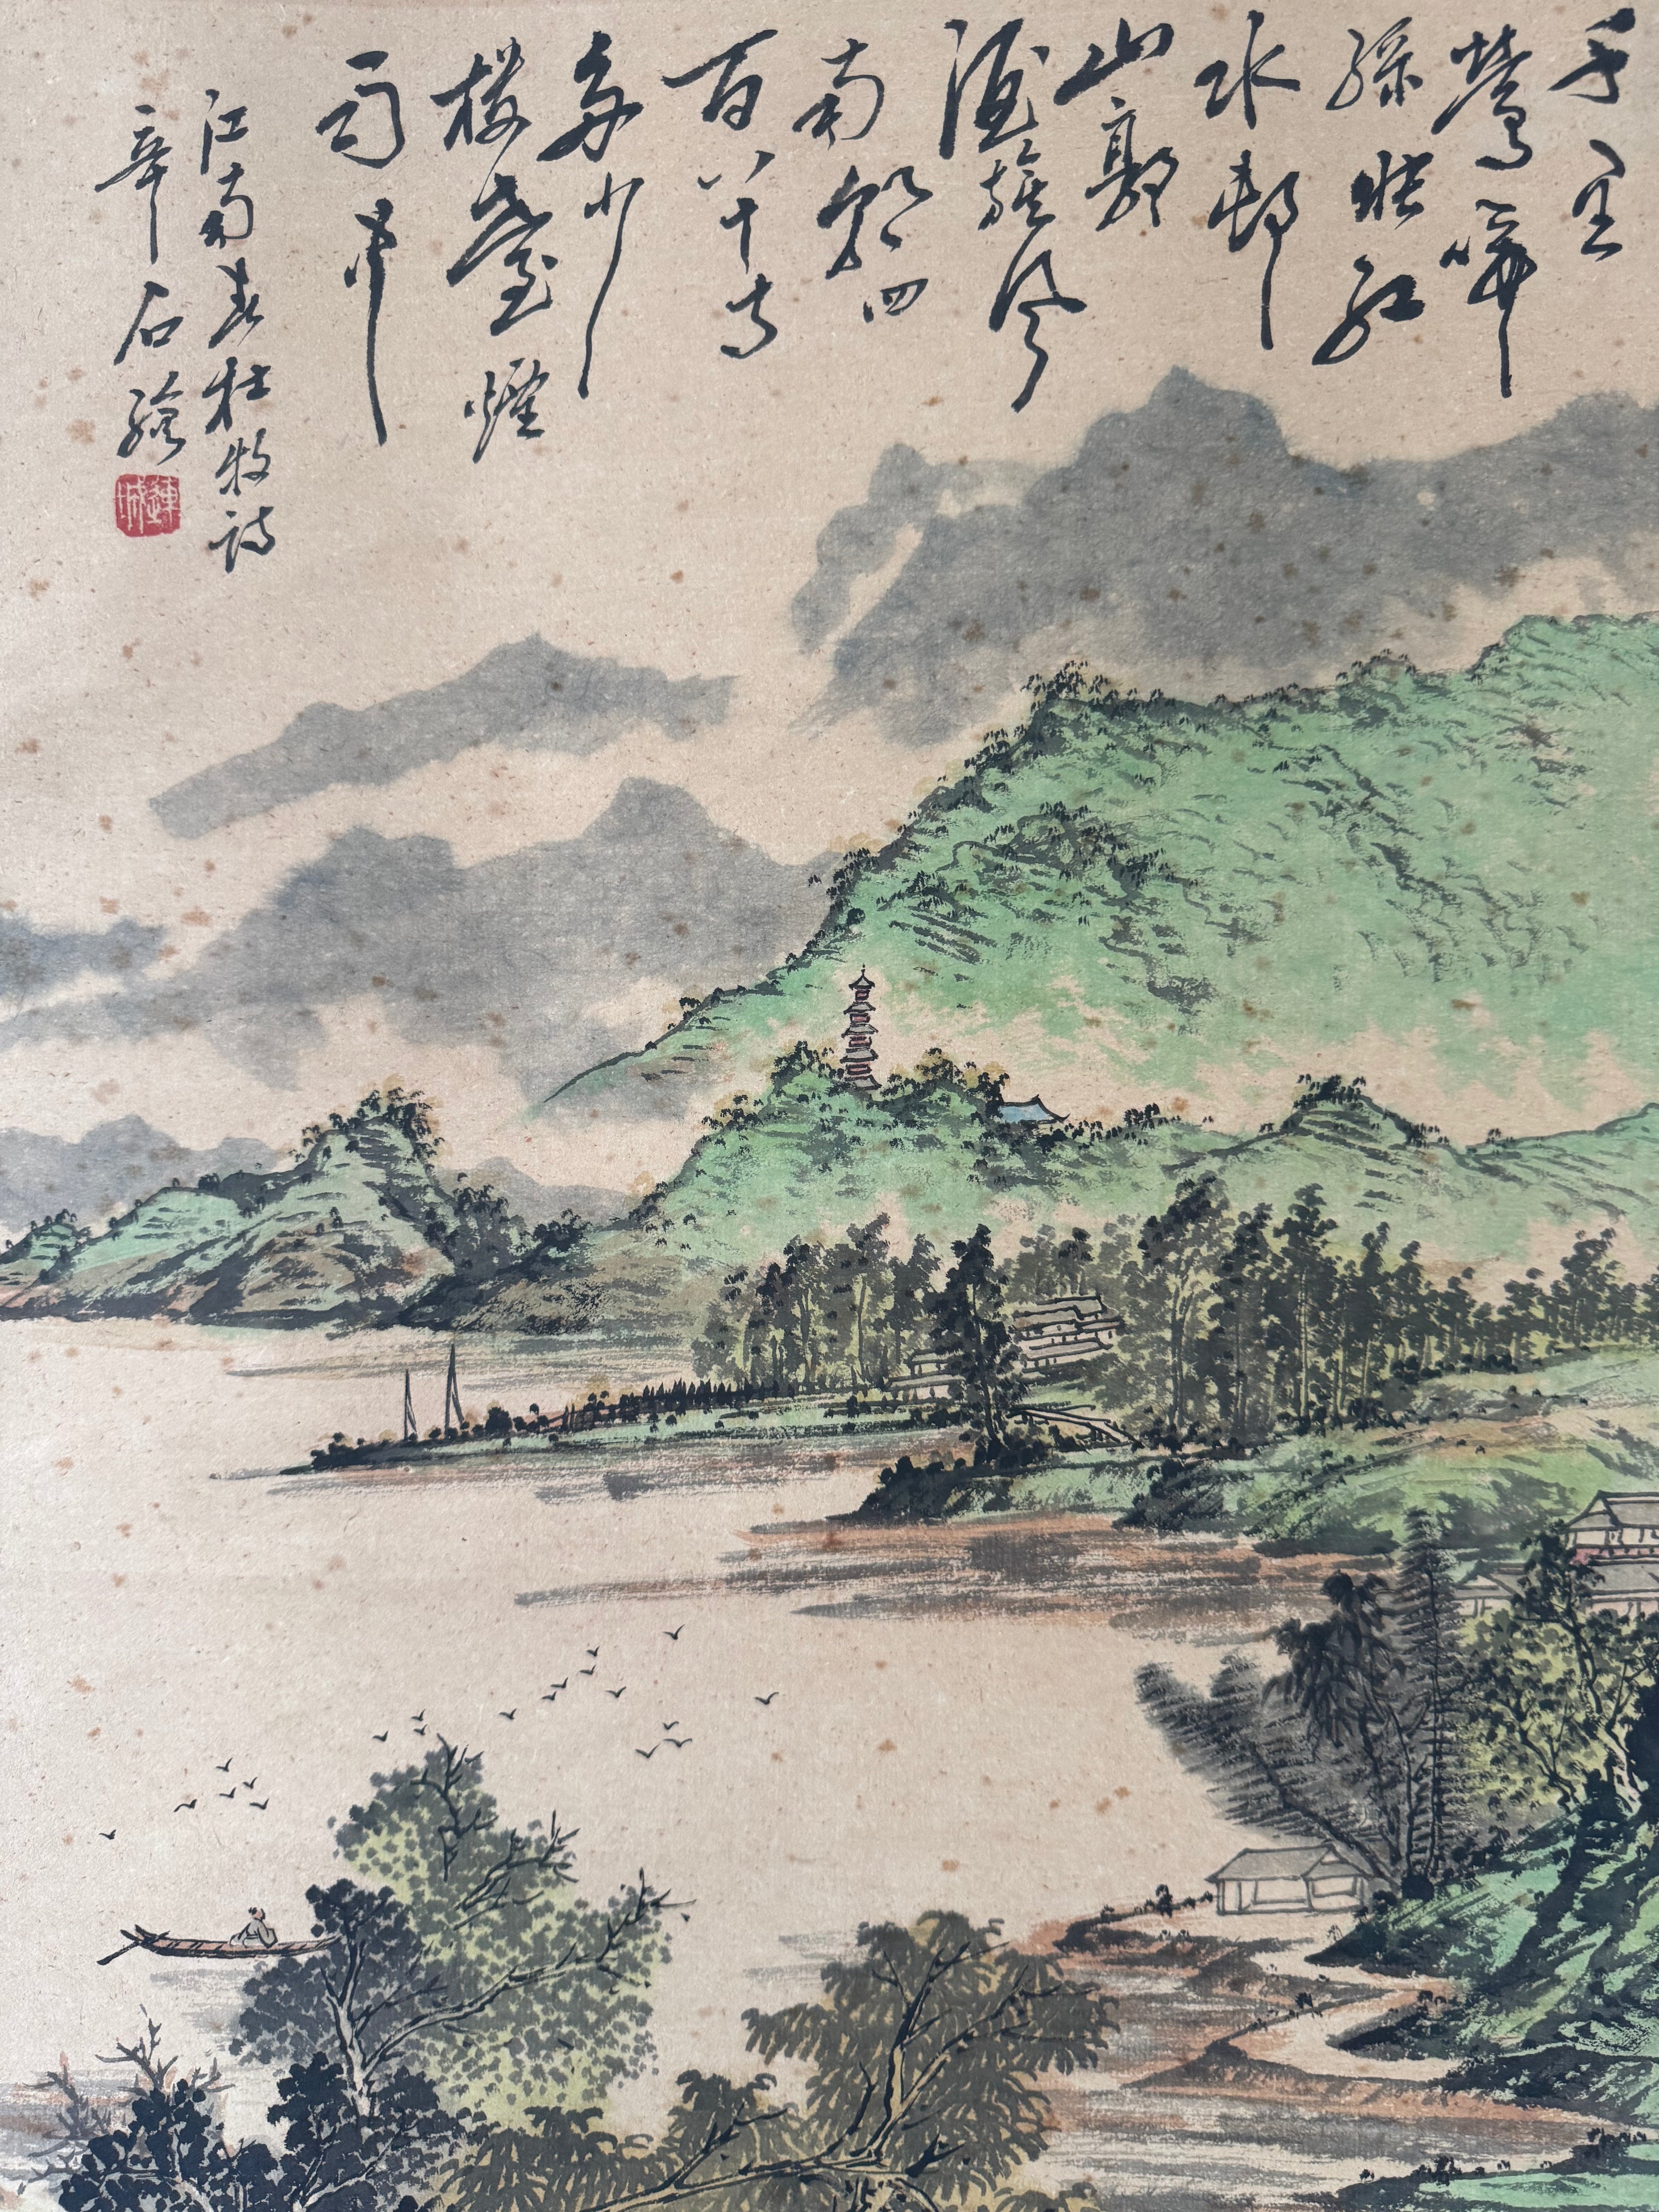 千里
鶯啼
綠映紅
水邨
山郭
酒旗風
南朝四
百八十寺
多少
樓臺煙
雨中
江南春杜牧詩
辛石繪
連城